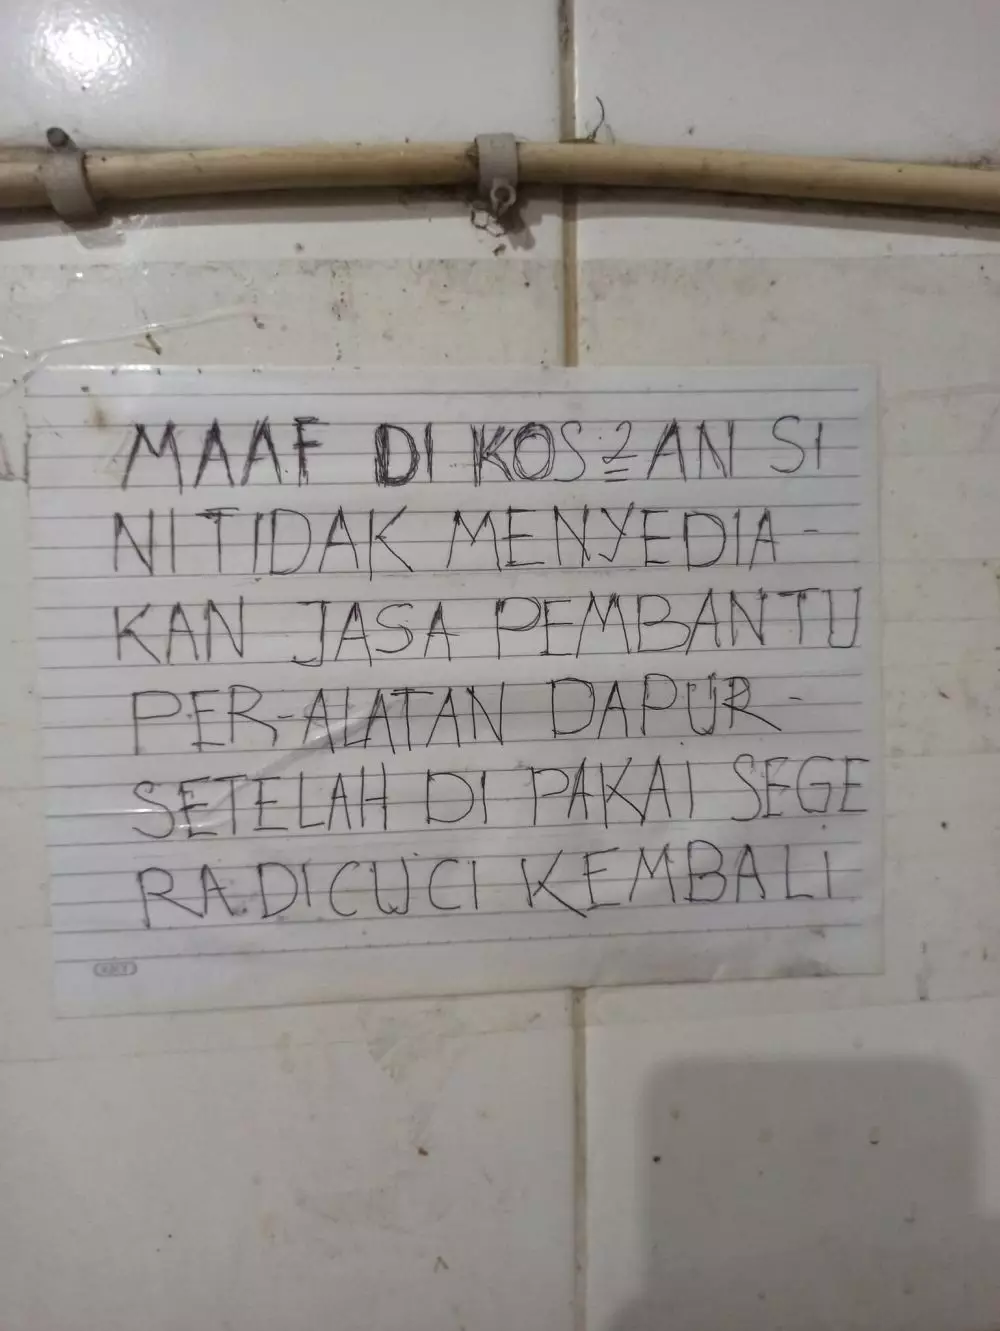 MAAF DI KOS2AN SI
NI TIDAK MENYEDIA-
KAN JASA PEMBANTU
PER-ALATAN DAPUR-
SETELAH DI PAKAI SEGE
RA.DICUCI KEMBALI